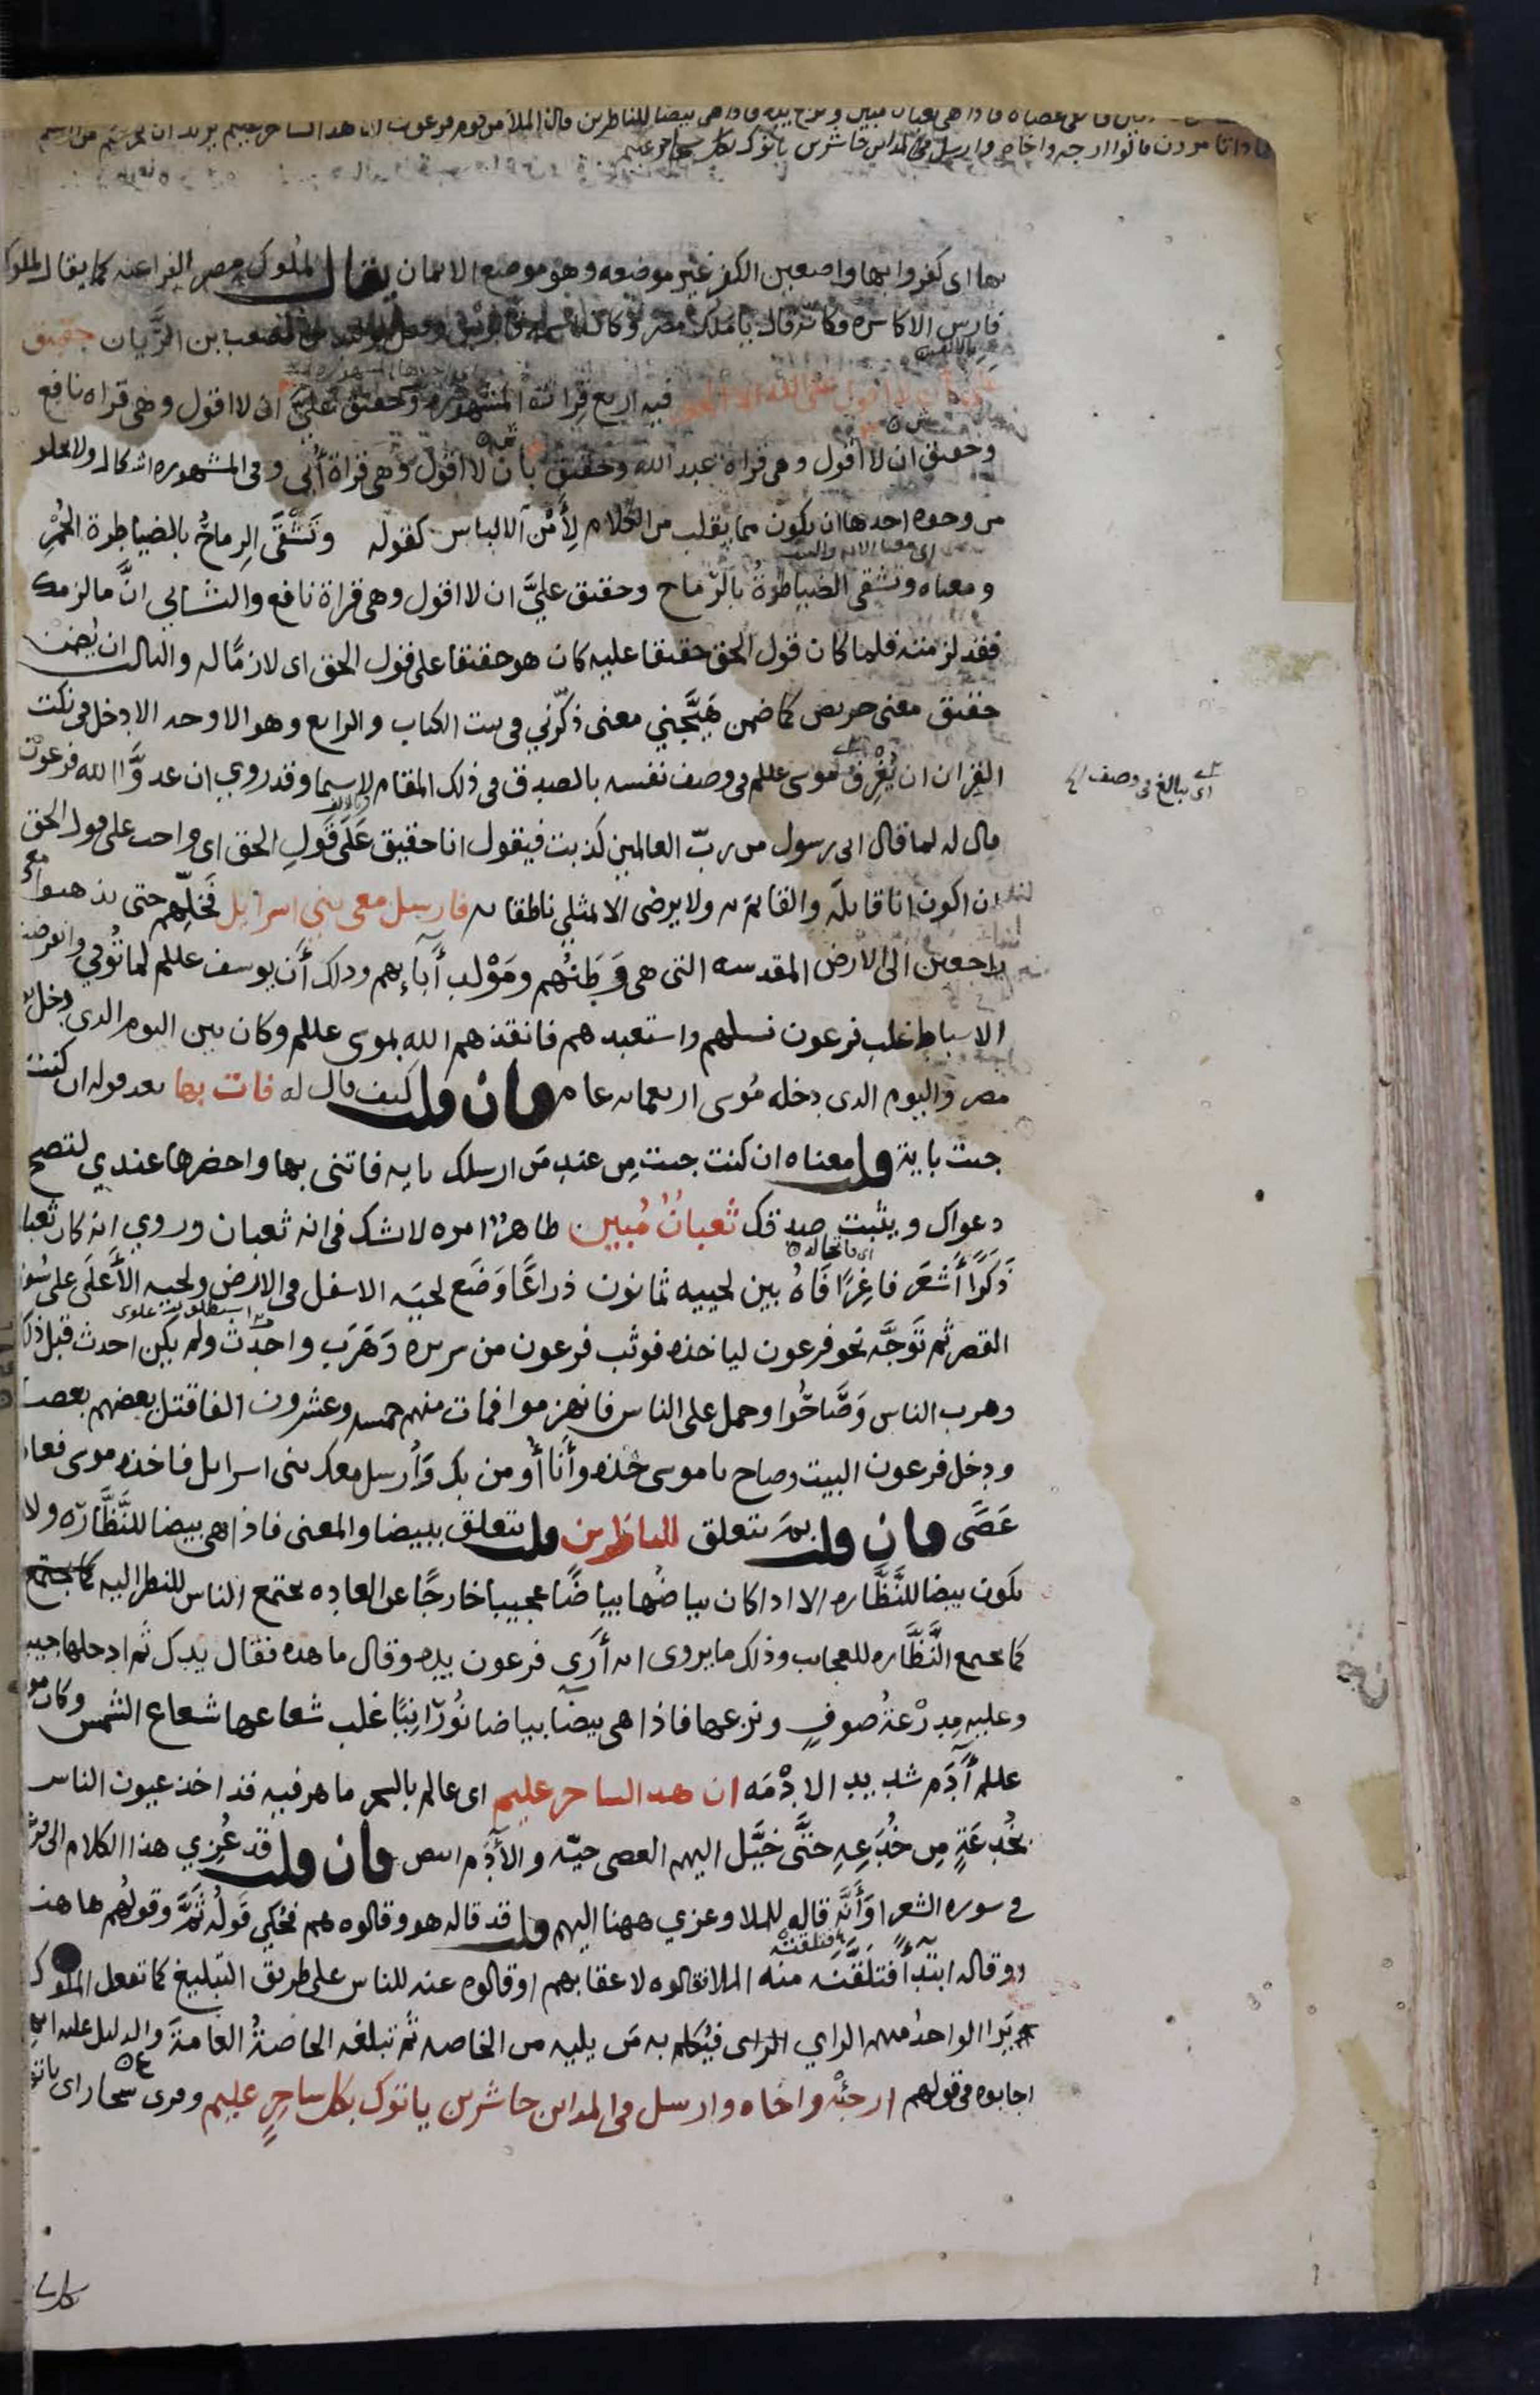 فالقى عصاه فاذا هى ثعبان مبين ونزع يده فاذا هى بيضا للناظرين قال الملأ من قوم فرعون ان هدا لساحر عليم يريد ان يخرجكم من ارضكم
فماذا تامرون قالوا ارجه واخاه وارسل فى المداين حاشرين ياتوك بكل ساحر عليم
بها اى كفروا بها واضعين الكفر غير موضعه وهو موضع الايمان يقال لملوك مصر الفراعنه كما يقال لملوك
فارس الاكاسره فكانه قال يا ملك مصر وكان اسمه قابوس وقيل الوليد بن مصعب بن الريان حقيق
على ان لا اقول على الله الا الحق فيه اربع قراات المشهوره وحقيق عليَّ ان لا اقول وهى قراه نافع
وحقيق ان لا اقول وهى قراه عبد الله وحقيق بان لا اقول وهى قراة أُبي وفى المشهوره اشكال ولا يخلو
من وجوه احدها ان يكون مما يقلب من الكلام لِأَمْن الالباس كقوله وتَشْقَى الرماحُ بالضياطرة الحُمْرِ
ومعناه وتشقى الضياطرةُ بالرّماح وحقيق عليَّ ان لا اقول وهى قراة نافع والثانى انَّ ما لزمك
فقد لزمته فلما كان قول الحق حقيقا عليه كان هو حقيقا على قول الحق اى لازمًا له والثالث ان يُضمن
حقيق معنى حريص كما ضمن هَيَّجَني معنى ذكّرني فى بيت الكتاب والرابع وهو الاوجه الادخل فى نكت
القران ان يُغرِق موسى عللم فى وصف نفسه بالصدق فى ذلك المقام لا سيما وقد روي ان عدوَّ الله فرعون
اى يبالغ فى وصف
قال له لما قال انى رسول من ربّ العالمين كذبت فيقول انا حقيق عَلَى قَولِ الحق اى واجب على قول الحق
ان اكون انا قايلَه والقايمَ به ولا يرضى الا بمثلي ناطقا به فارسل معى بنى اسرايل فَخلِّهم حتى يذهبوا معى
راجعين الى الارض المقدسه التى هى وَطَنُهم ومَوْلد آبآئهم وذلك أنّ يوسف عللم لما تُوفي وانقرضت
الاسباط غلب فرعون نسلهم واستعبدهم فانقذهم الله بموسى عللم وكان بين اليوم الذى دخل يوسف
مصر واليوم الذى دخله مُوسى اربعمايه عام فان قلت كيف قال له فات بها بعد قوله ان كنت
جيت باية قلت معناه ان كنت جيت مِن عندِ مَن ارسلك بايه فاتنى بها واحضرها عندي لتصح
دعواك ويثبت صدقك ثعبانٌ مُبين ظاهرٌ امره لا شك فى انه ثعبان وروي انه كان ثعبانا
ذَكَرًا أَشعَر فاغِرًا فَاهُ بين لحييه ثمانون ذراعًا وَضَع لحيَه الاسفل فى الارض ولحيه الأَعلَى على سُور
القصر ثم تَوَجَّه نحو فرعون لياخذه فوثب فرعون من سريره وَهَرَب واحدَث ولم يكن احدث قبل ذلك
وهرب الناس وَصَاحُوا وحمل على الناس فانهزموا فمات منهم خمسه وعشرون الفا قتل بعضهم بعضا
ودخل فرعون البيت وصاح يا موسى خذه وأَنَا أُومن بك وَأُرسل معك بنى اسرايل فاخذه موسى فعاد
عَصًى فان قلت بمَ يتعلق للناظرين قلت يتعلق ببيضا والمعنى فاذا هى بيضا للنَّظَّارَه ولا
تكون بيضا للنَّظَّاره الا اذا كان بياضُها بياضًا عجيبا خارجًا عن العاده يجتمع الناس للنظر اليه
كما يجتمع النَّظَّاره للعجايب وذلك ما يروى انه أَرَى فرعون يده وقال ما هذه فقال يدك ثم ادخلها جيبه
وعليه مِدرْعَةُ صوفٍ ونزعها فاذا هى بيضآ بياضا نُورَانِيًا غلب شعاعها شعاع الشمس وكان موسى
عللم آدَم شديد الادْمَه ان هدا لساحر عليم اى عالم بالسحر ماهر فيه قد اخذ عيون الناس
بخُدعَةٍ مِن خُدَعِهِ حَتَّى خَيَّل اليهم العصى حيّه والآدَم ابيض فان قلت قد عُزي هذا الكلام الى فرعون
في سوره الشعرا وَأَنَّه قاله للملا وعزي ههنا اليهم قلت قد قاله هو وقالوه هم فحُكي قَولُه ثَمَّ وقولُهم هاهنا
او قاله ابتدآ فتلقَّنَه منه الملا فقالوه لاعقابهم او قالوه عنه للناس على طريق التبليغ كما تفعل الملوك
يَرَا الواحدُ منهم الراي فيُكلم به مَن يليه من الخاصه ثم تبلغه الخاصةُ العامةَ والدليل عليه انهم
اجابوه فى قولهم ارجئْه واخاه وارسل فى المداين حاشرين ياتوك بكل ساحرٍ عليم وقرى سحار اى